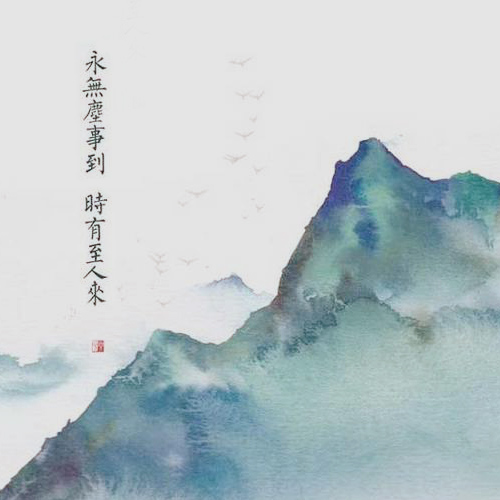 永無塵事到 時有至人來